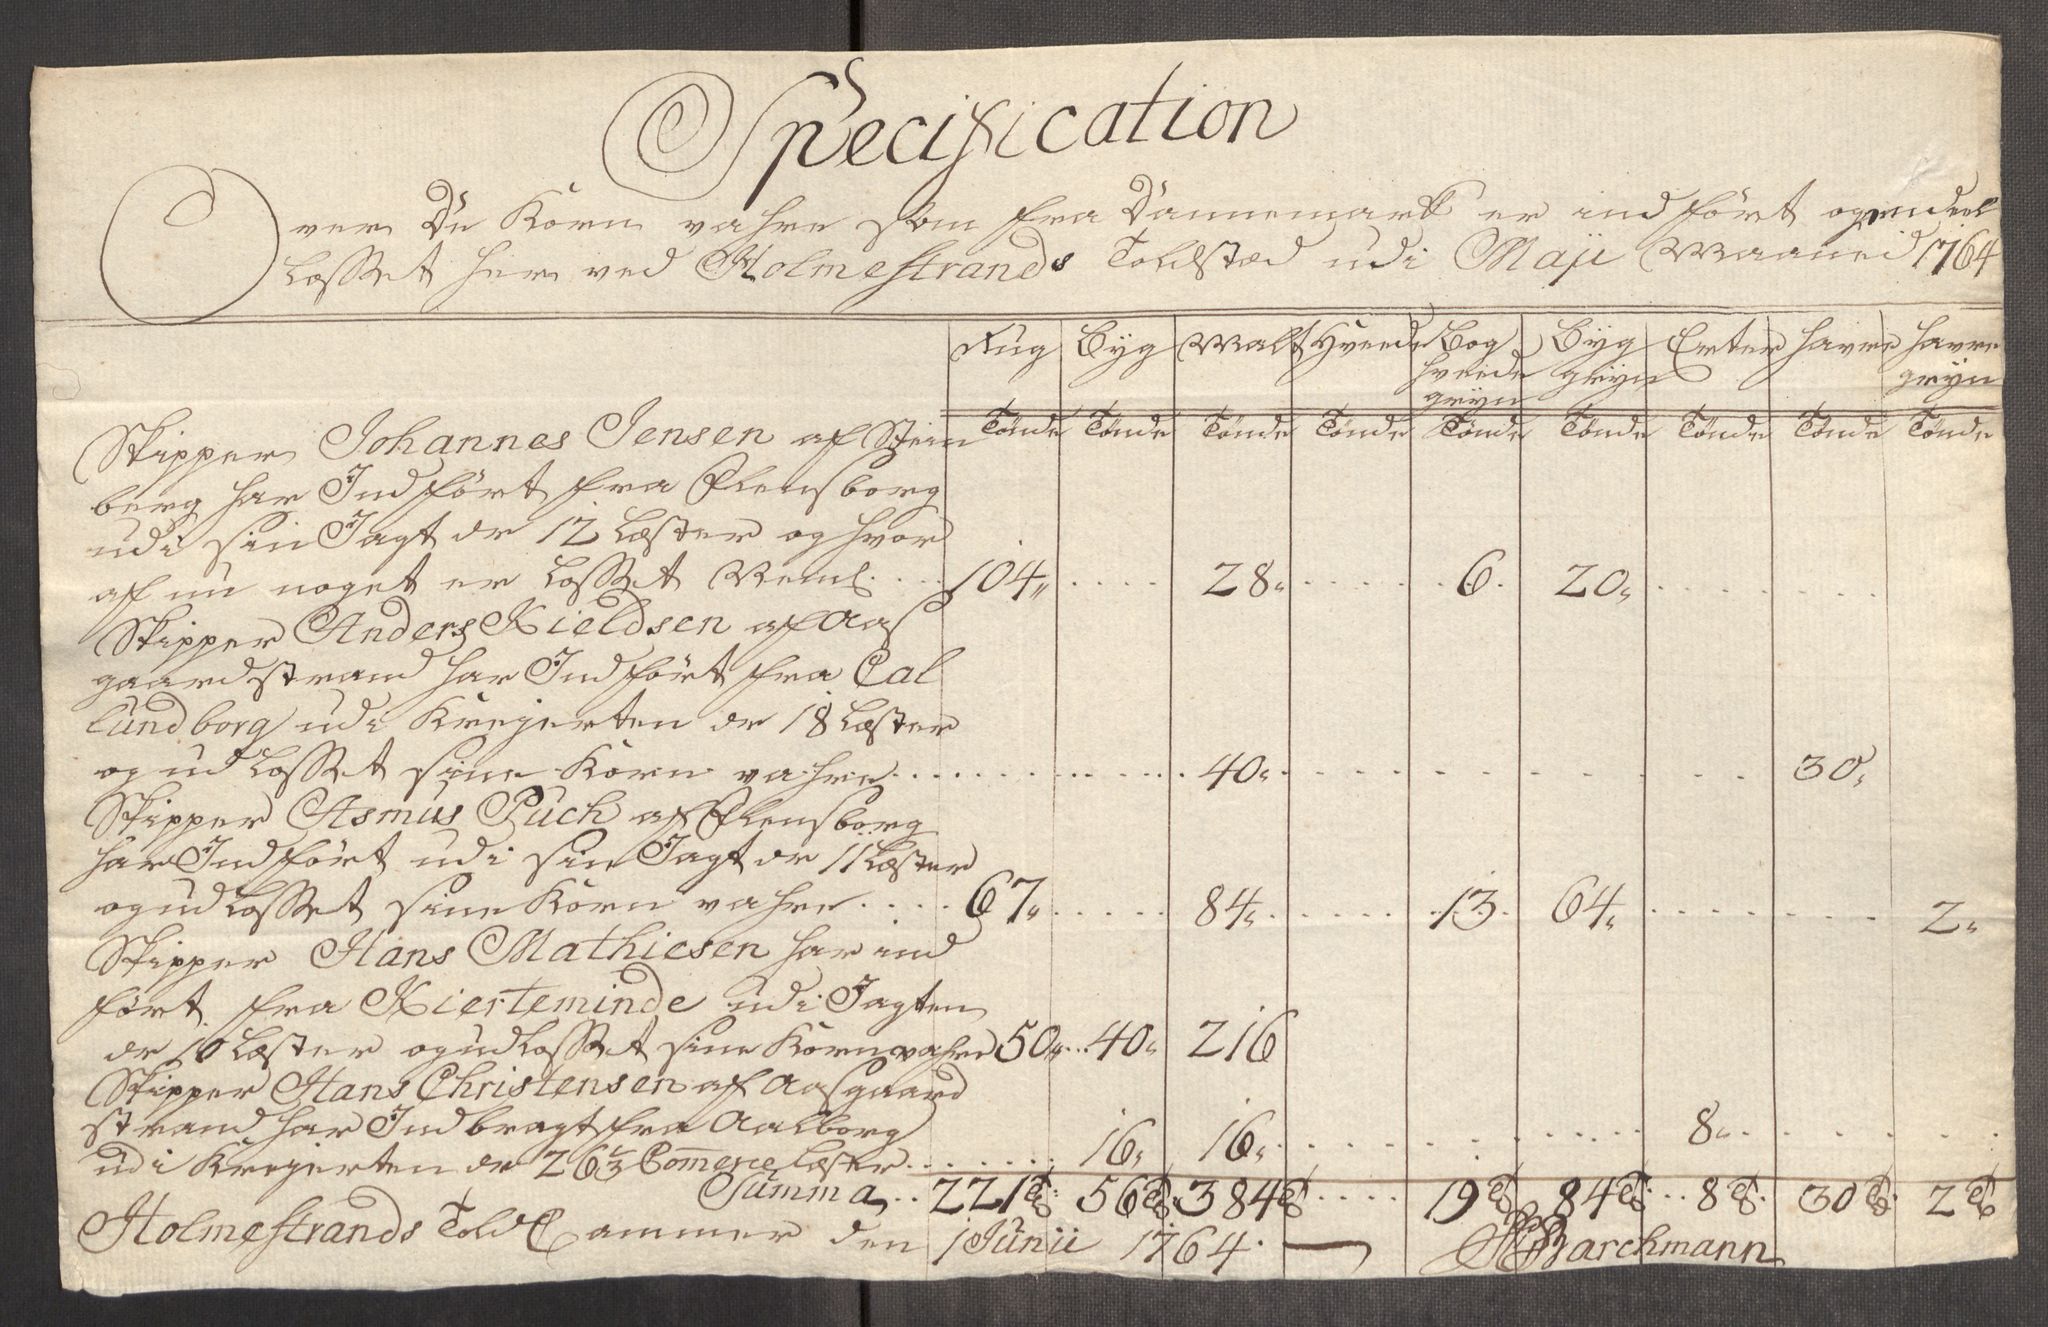 Specification
Over De Korn vahre som fra Dannemark er indført og endeel
Losset her ved Holmestrands Toldstæd udi Maji Maaned 1764
Rug Byg Malt Hvede Bog hvede gryn Byg gryn Erter Havre Havre gryn
Tønde Tønde Tønde Tønde Tønde Tønde Tønde Tønde Tønde
Skipper Johannes Jensen af Stein
berg har Indført fra Flensborg
udi sin Jagt dr 12 Læster og hvor
af nu noget er Losset Neml. 104 28 6 20
Skipper Anders Kieldsen af Aas
gaardstrand har Indført fra Cal
lundborg udi Krejerten dr 18 Læster
og udLosset sine Korn vahre 40 30
Skipper Asmus Puch af Flensborg
har Indført udi sin Jagt dr 11 Læster
og udLosset sine Korn vahre 67 84 13 64 2
Skipper Hans Mathiesen har ind
ført fra Kierteminde udi Jagten
dr 10 Læster og udLosset sine Korn vahre 50 40 216
Skipper Hans Christensen af Aasgaard
strand har Indbragt fra Aalborg
udi Krejerten dr 26 1/3 Commerce Læster 16 16 8
Summa 221 T 56 T 384 T 19 T 84 T 8 T 30 T 2 T
Holmestrands Told Cammer den 1 Junii 1764. Barchmann